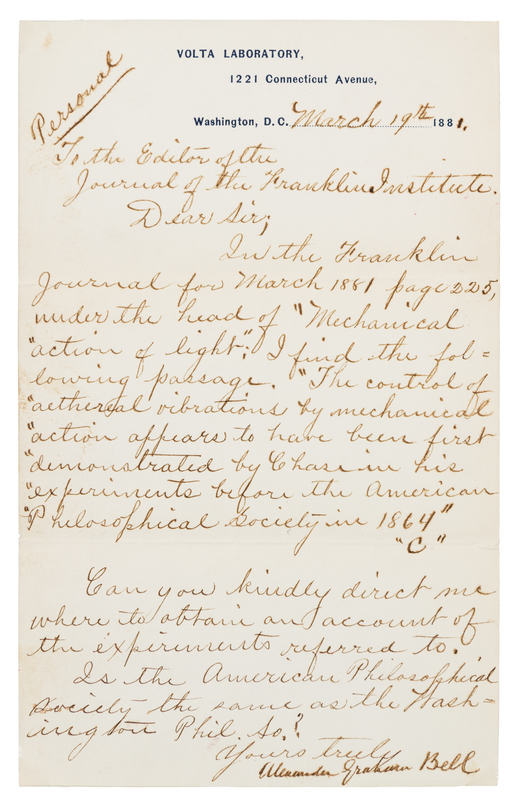 VOLTA LABORATORY,
1221 Connecticut Avenue,
Personal
Washington, D.C. March 19th 1881.
To the Editor of the
Journal of the Franklin Institute.
Dear Sir;
In the Franklin
Journal for March 1881 page 225,
under the head of "Mechanical
"action of light": I find the fol=
lowing passage. "The control of
"aethereal vibrations by mechanical
"action appears to have been first
"demonstrated by Chase in his
"experiments before the American
"Philosophical Society in 1864"
"C"
Can you kindly direct me
where to obtain an account of
the experiments referred to.
Is the American Philosophical
Society the same as the Wash=
ington Phil. So.?
Yours truly
Alexander Graham Bell